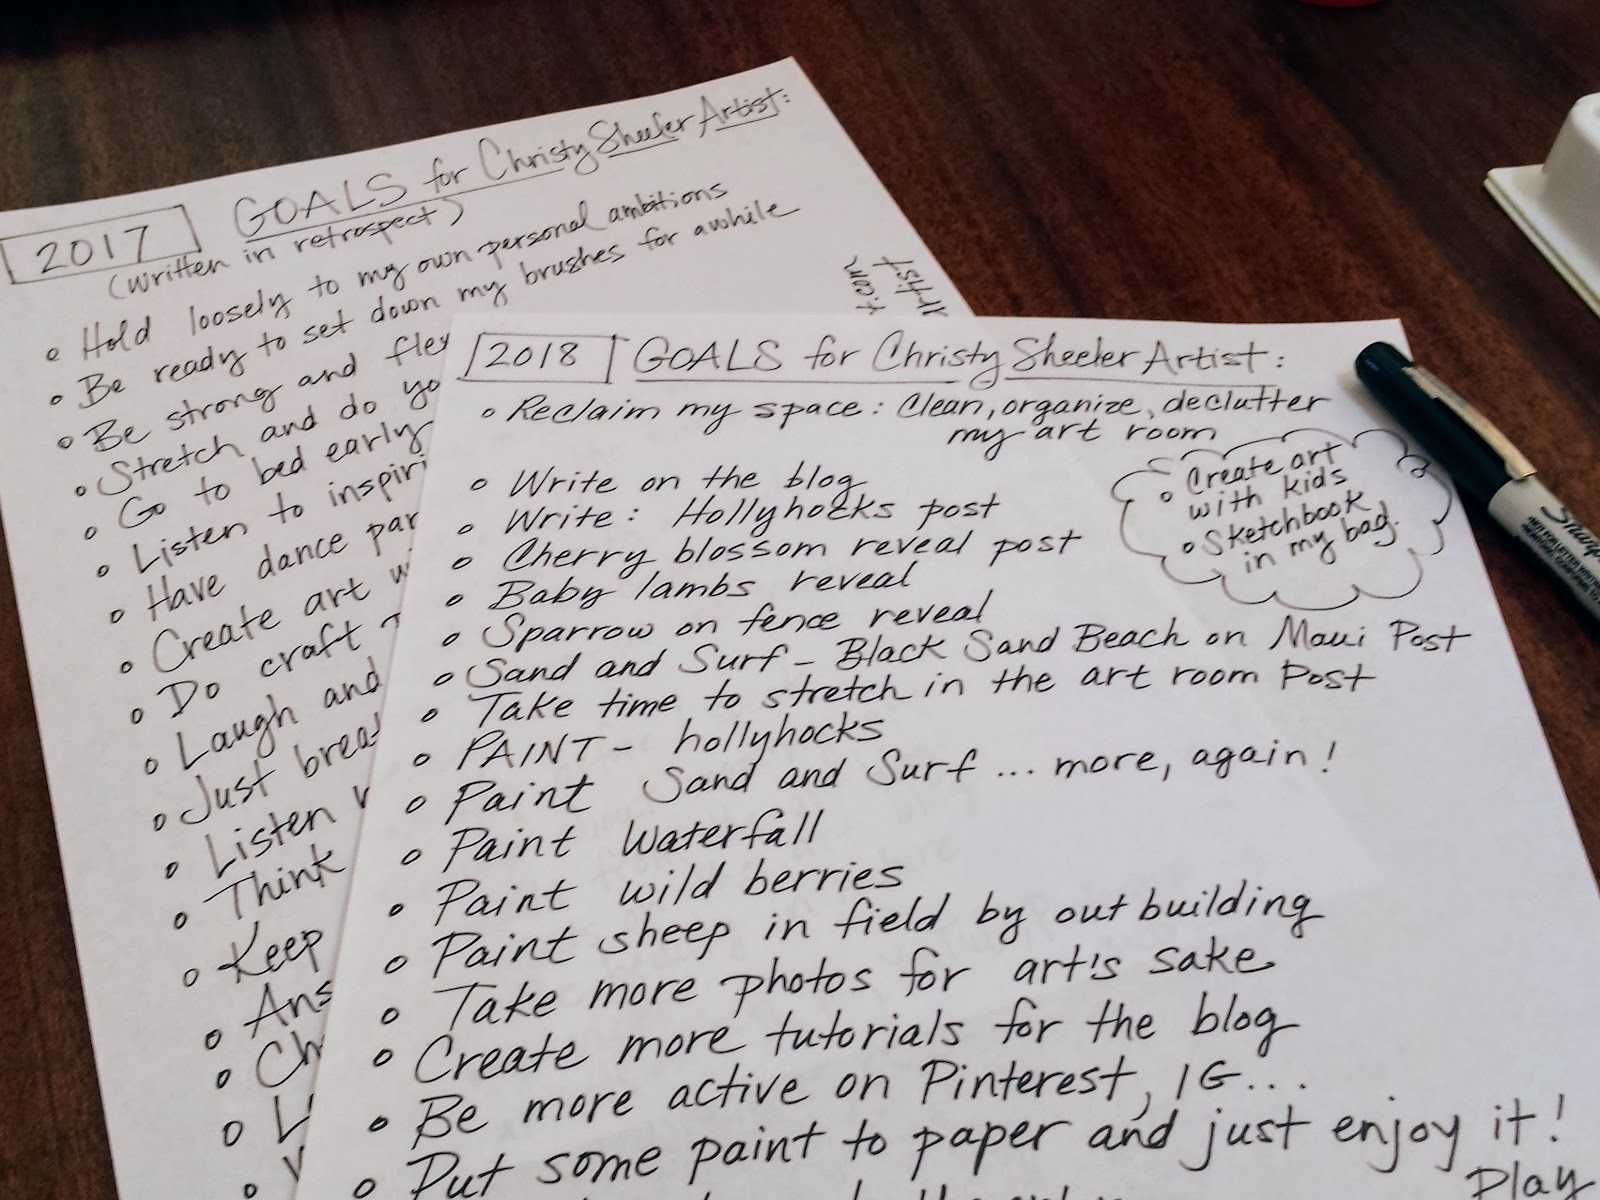 2017 GOALS for Christy Sheeler Artist:
(written in retrospect)
Hold loosely to my own personal ambitions
Be ready to set down my brushes for awhile
Be strong and
Stretch and do
Go to bed early
Listen to
Have dance
Create art
Do craft
Laugh and
Just
Listen
Think
Keep
2018 GOALS for Christy Sheeler Artist:
Reclaim my space: Clean, organize, declutter
my art room
Write on the blog
Write: Hollyhocks post
Cherry blossom reveal post
Baby lambs reveal
Sparrow on fence reveal
Sand and Surf - Black Sand Beach on Maui Post
Take time to stretch in the art room Post
PAINT - hollyhocks
Paint Sand and Surf ... more, again!
Paint Waterfall
Paint wild berries
Paint sheep in field by outbuilding
Take more photos for art's sake
Create more tutorials for the blog
Be more active on Pinterest, IG...
Put some paint to paper and just enjoy it!
Play
Create art
with kids
Sketchbook
in my bag.